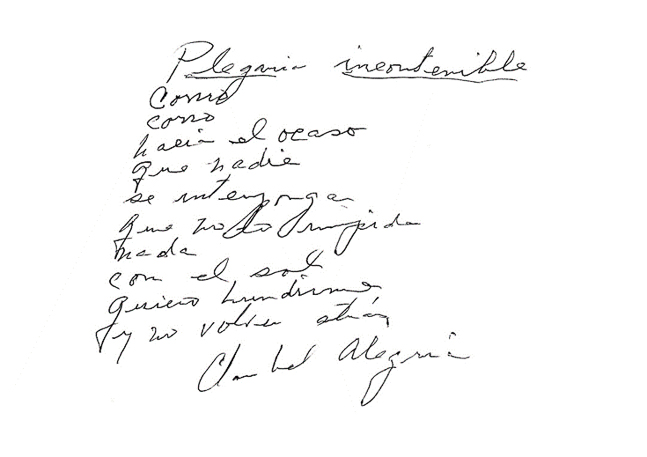 Plegaria incontenible
Corro
corro
hacia el ocaso
que nadie
se interponga
que no lo impida
nada
con el sol
quiero hundirme
y no volver atrás
Claribel Alegría